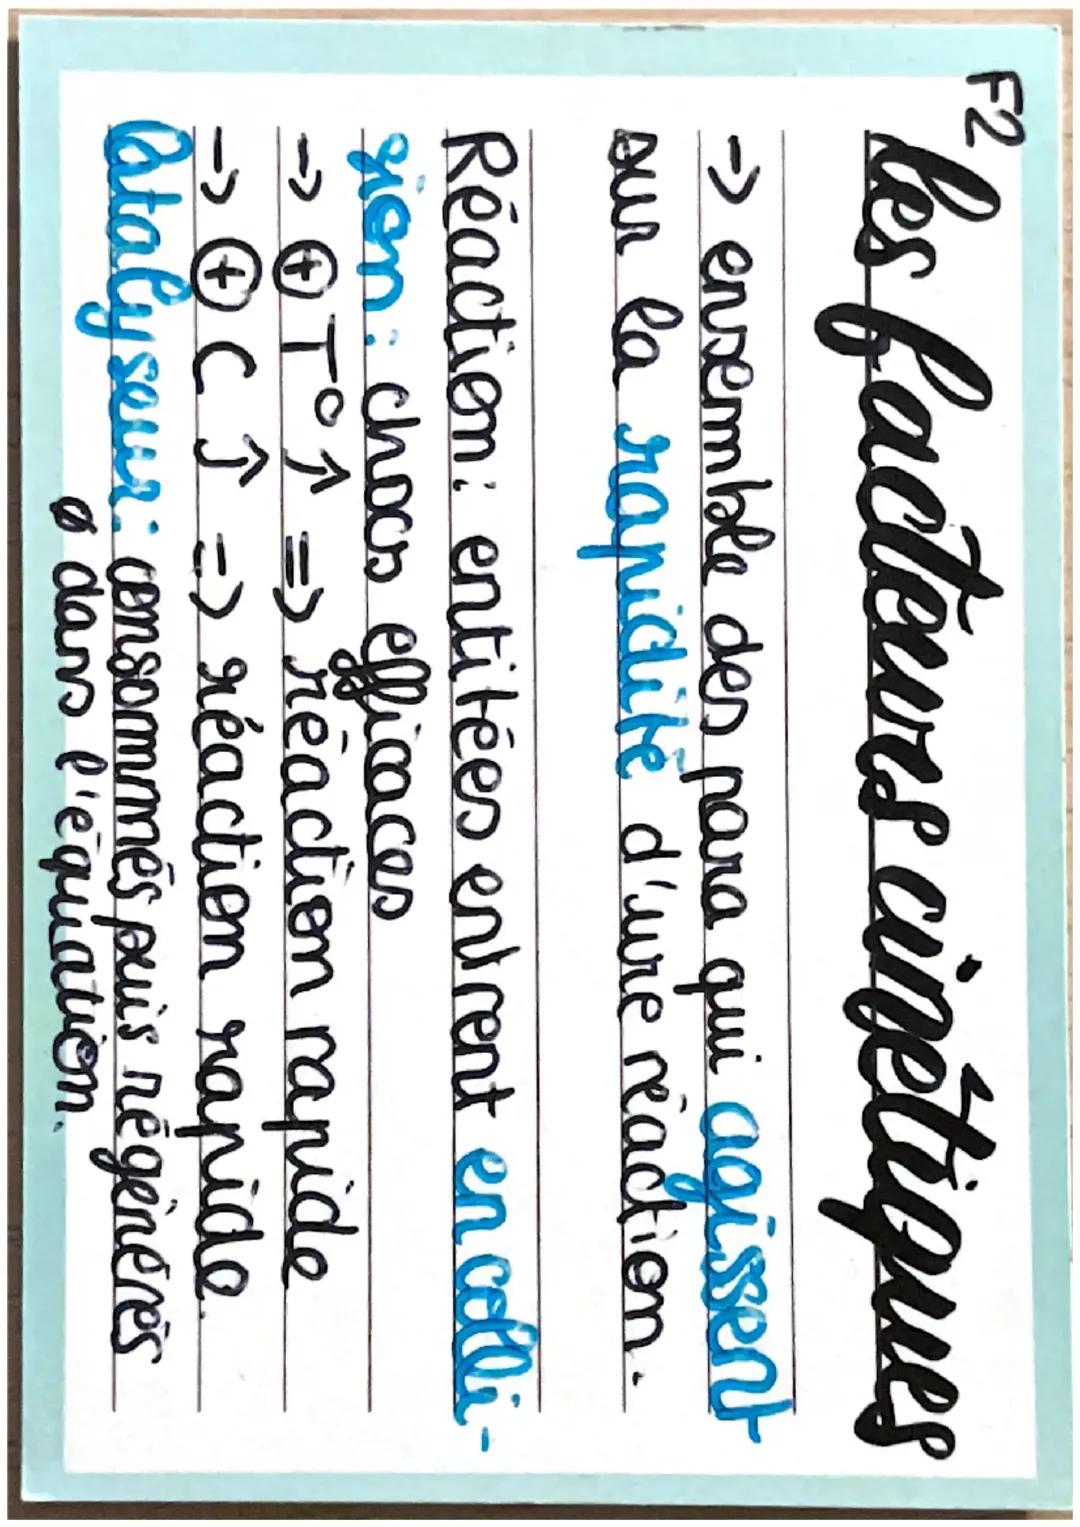 F2
les facteurs cinétiques
-> ensemble des para qui agissent
sur la rapidité d'une réaction.
Réaction : entitées entrent en colli-
sion : chocs efficaces
-> ⊕ T° ↑ => réaction rapide
-> ⊕ C ↑ => réaction rapide.
Catalyseur : consommés puis régénérés
ø dans l'équation.